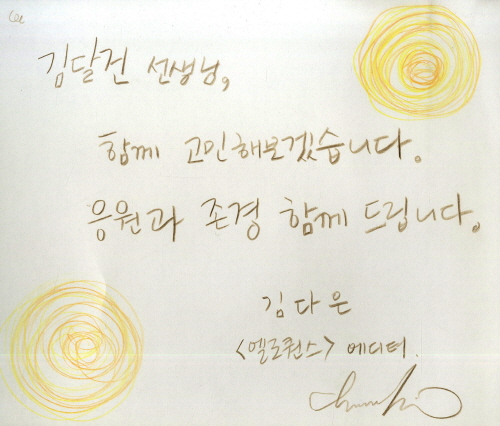 김달건 선생님,
함께 고민해보겠습니다.
응원과 존경 함께 드립니다.
김다은
<엘로퀀스> 에디터.